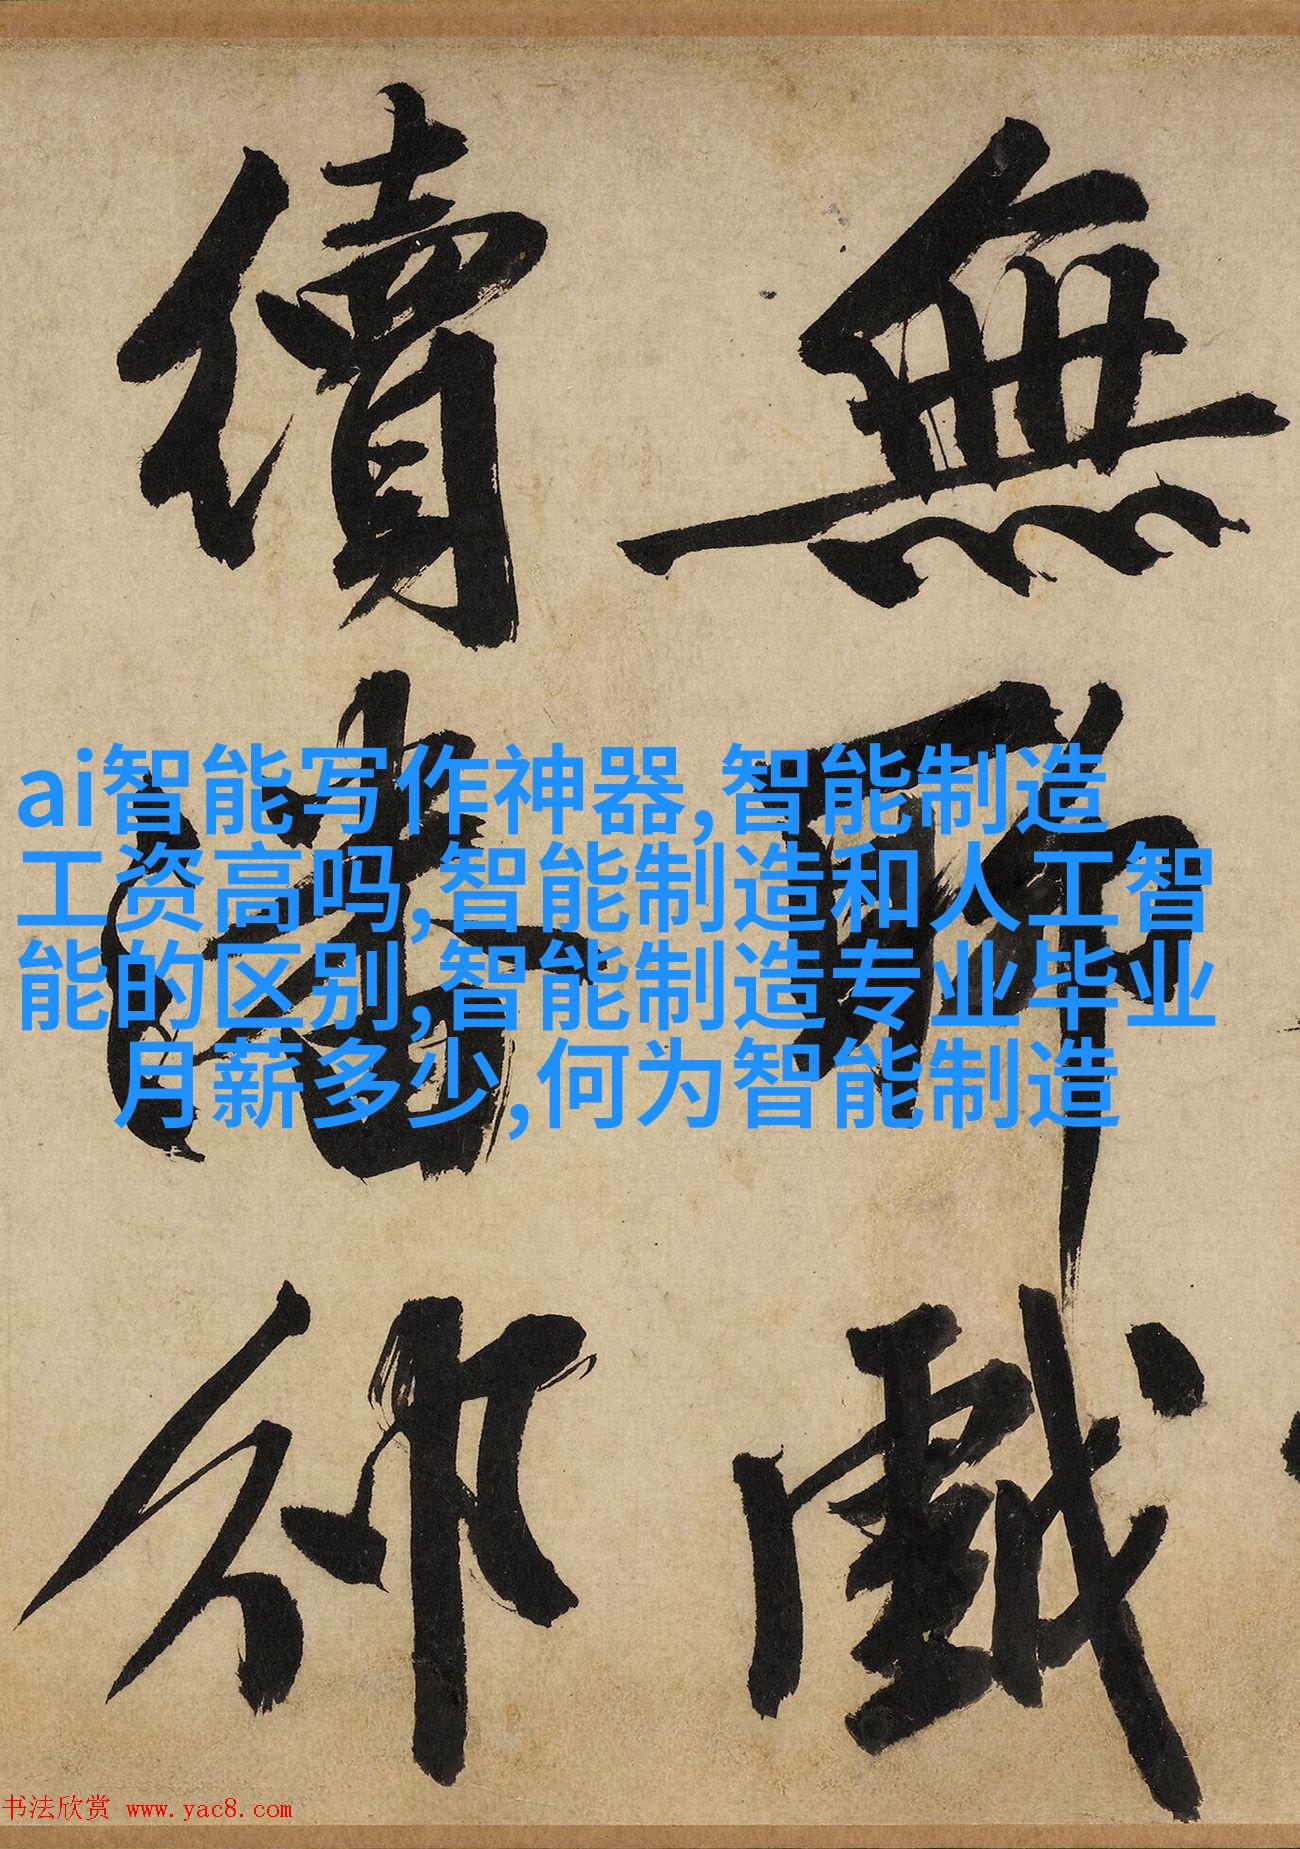 無
戲
續
ai智能写作神器,智能制造
工资高吗,智能制造和人工智
能的区别,智能制造专业毕业
月薪多少,何为智能制造
书法欣赏 www.yac8.com